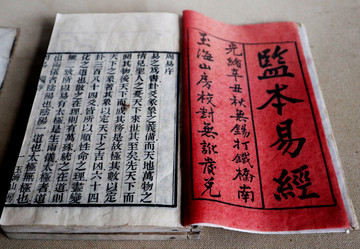 監本易經
光緒辛丑秋無錫打鐵橋南
玉海山房校對無訛發兌
周易序
易之為書卦爻彖象之義備而天地萬物之
情見聖人之憂天下來世其至矣先天下而
開其物後天下而成其務是故極其數以定
天下之象著其象以定天下之吉凶六十四
卦三百八十四爻皆所以順性命之理盡變
化之道也散之在理則有萬殊統之在道則
無二致所以易有太極是生兩儀太極者道
也兩儀者陰陽也陰陽一道也太極無極也